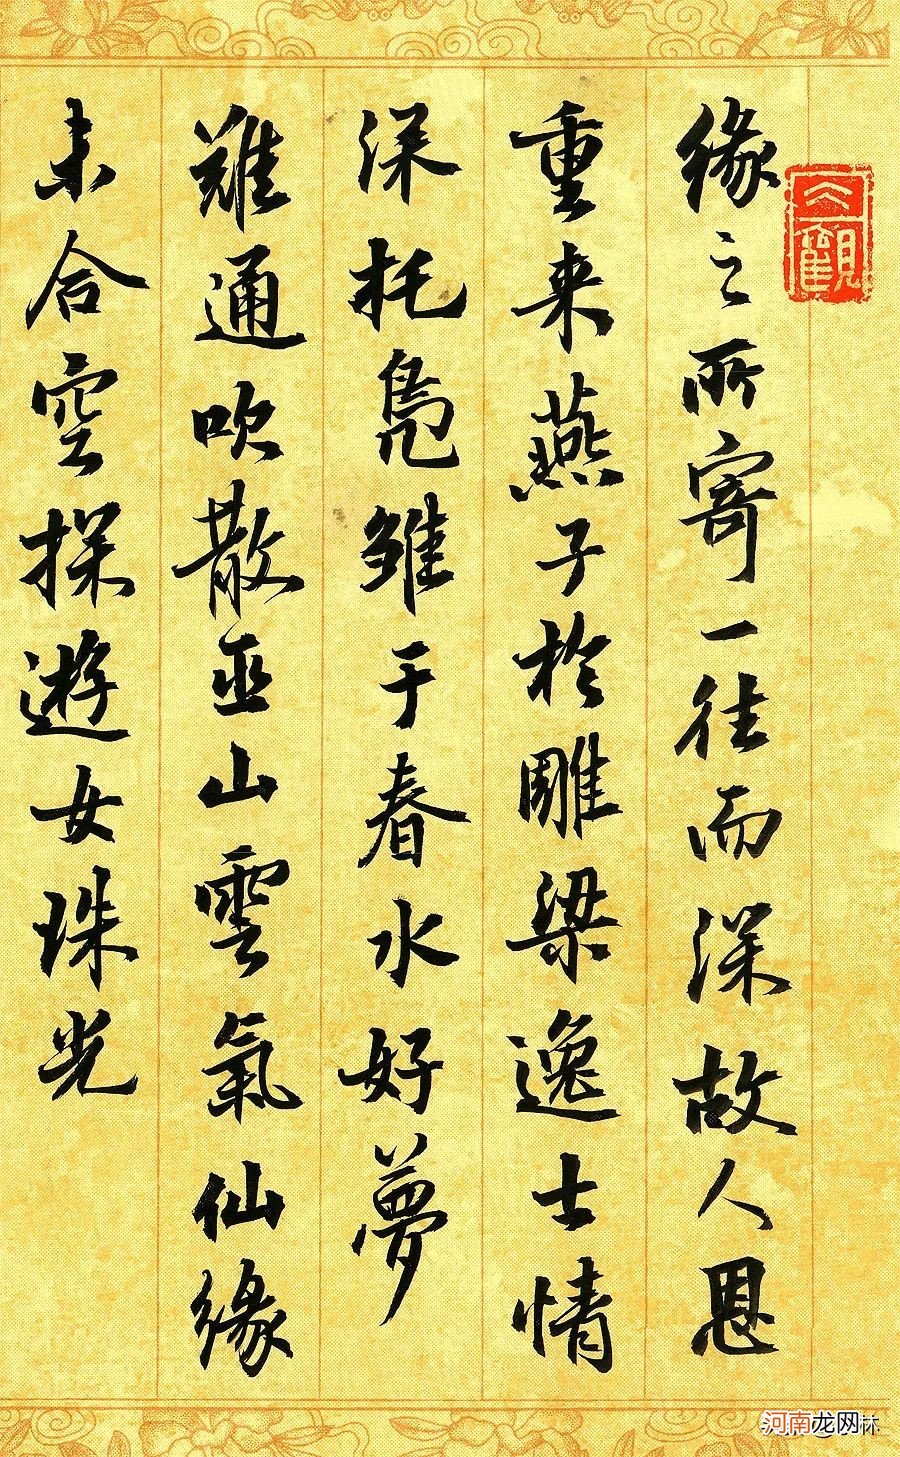 緣之所寄一往而深故人恩
重来燕子於雕梁逸士情
深托鳧雏于春水好夢
難通吹散巫山雲氣仙緣
未合空探遊女珠光
河南龙网
林